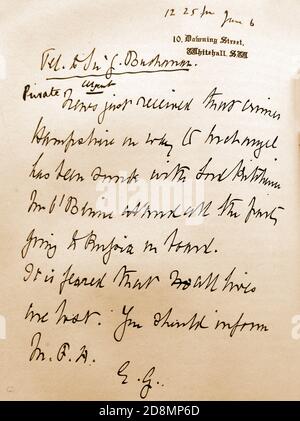 12 25 pm June 6
10, Downing Street,
Whitehall. S.W.
Tel. to Sir G. Buchanan.
Private & Urgent
News just received that cruiser
Hampshire on way to Archangel
has been sunk with Lord Kitchener
Mr O'Beirne and all the party
going to Russia on board.
It is feared that all lives
are lost. You should inform
M. F. A.
E. G.
alamy
Image ID: 2D8MP6D
www.alamy.com